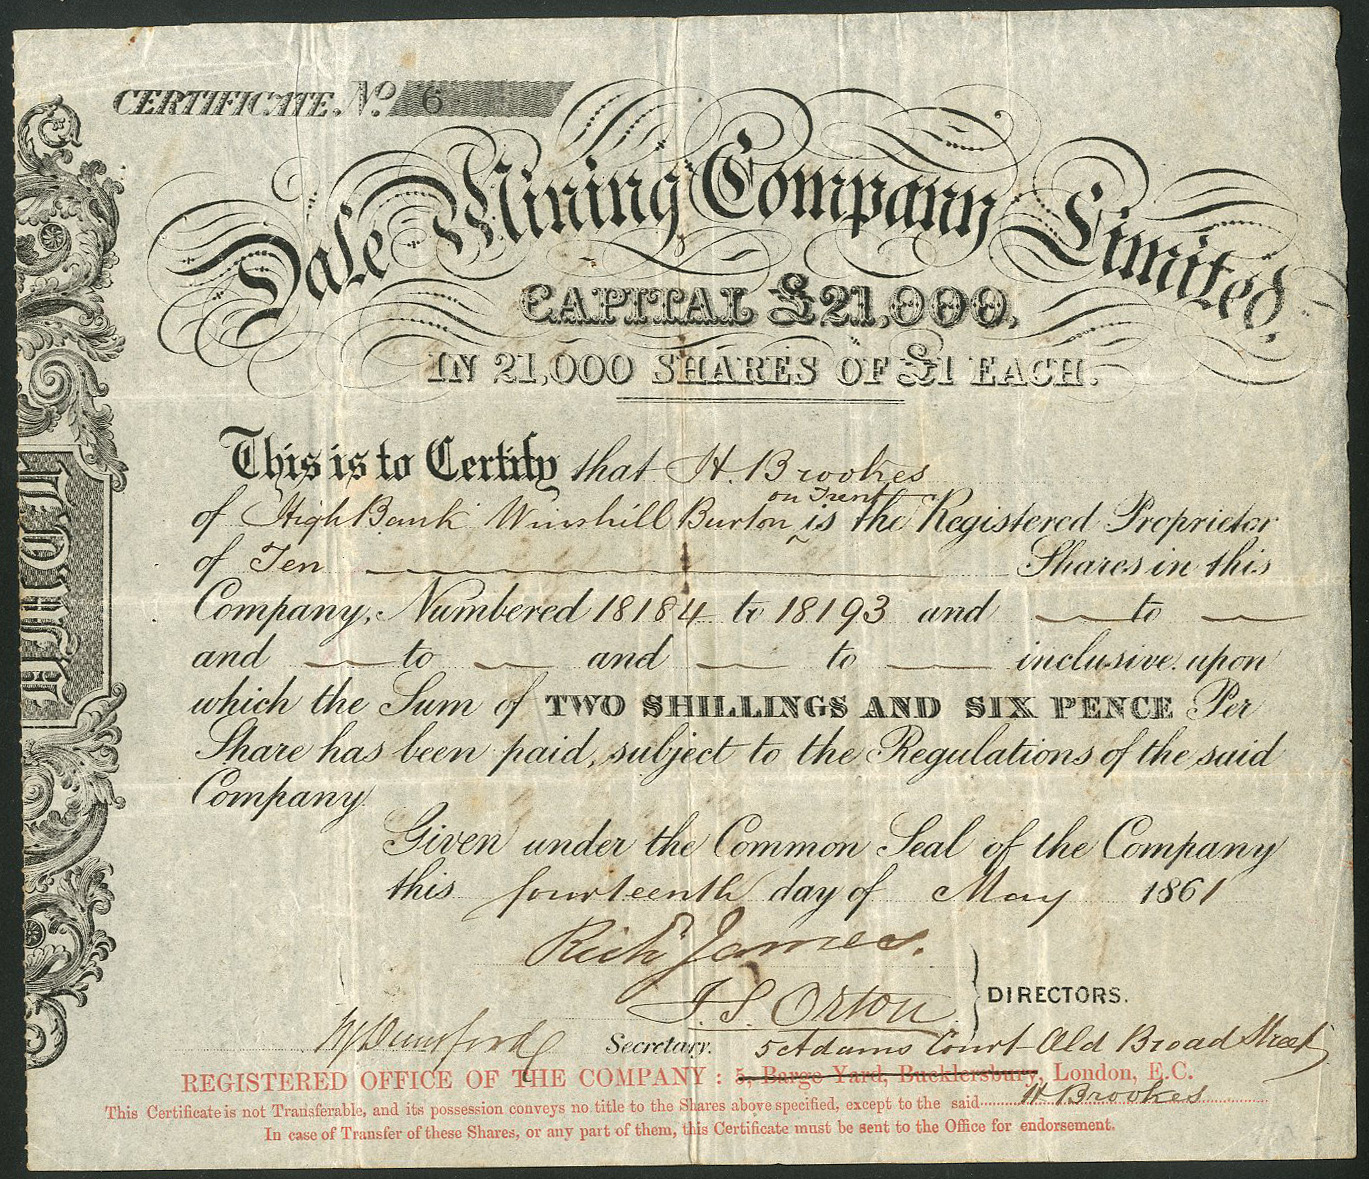 CERTIFICATE. No. 6
Dale Mining Company Limited,
CAPITAL £21,000,
IN 21,000 SHARES OF £1 EACH.
This is to Certify that H. Brookes
on Trent
of High Bank Winshill Burton ‸ is the Registered Proprietor
of Ten Shares in this
Company, Numbered 18184 to 18193 and — to —
and — to — and — to — inclusive upon
which the Sum of TWO SHILLINGS AND SIX PENCE Per
Share has been paid, subject to the Regulations of the said
Company.
Given under the Common Seal of the Company
this fourteenth day of May 1861
Richd James.
J. S. Orton
DIRECTORS.
Secretary. 5 Adams Court Old Broad Street
REGISTERED OFFICE OF THE COMPANY : 5, Barge Yard, Bucklersbury, London, E.C.
This Certificate is not Transferable, and its possession conveys no title to the Shares above specified, except to the said H Brookes
In case of Transfer of these Shares, or any part of them, this Certificate must be sent to the Office for endorsement.